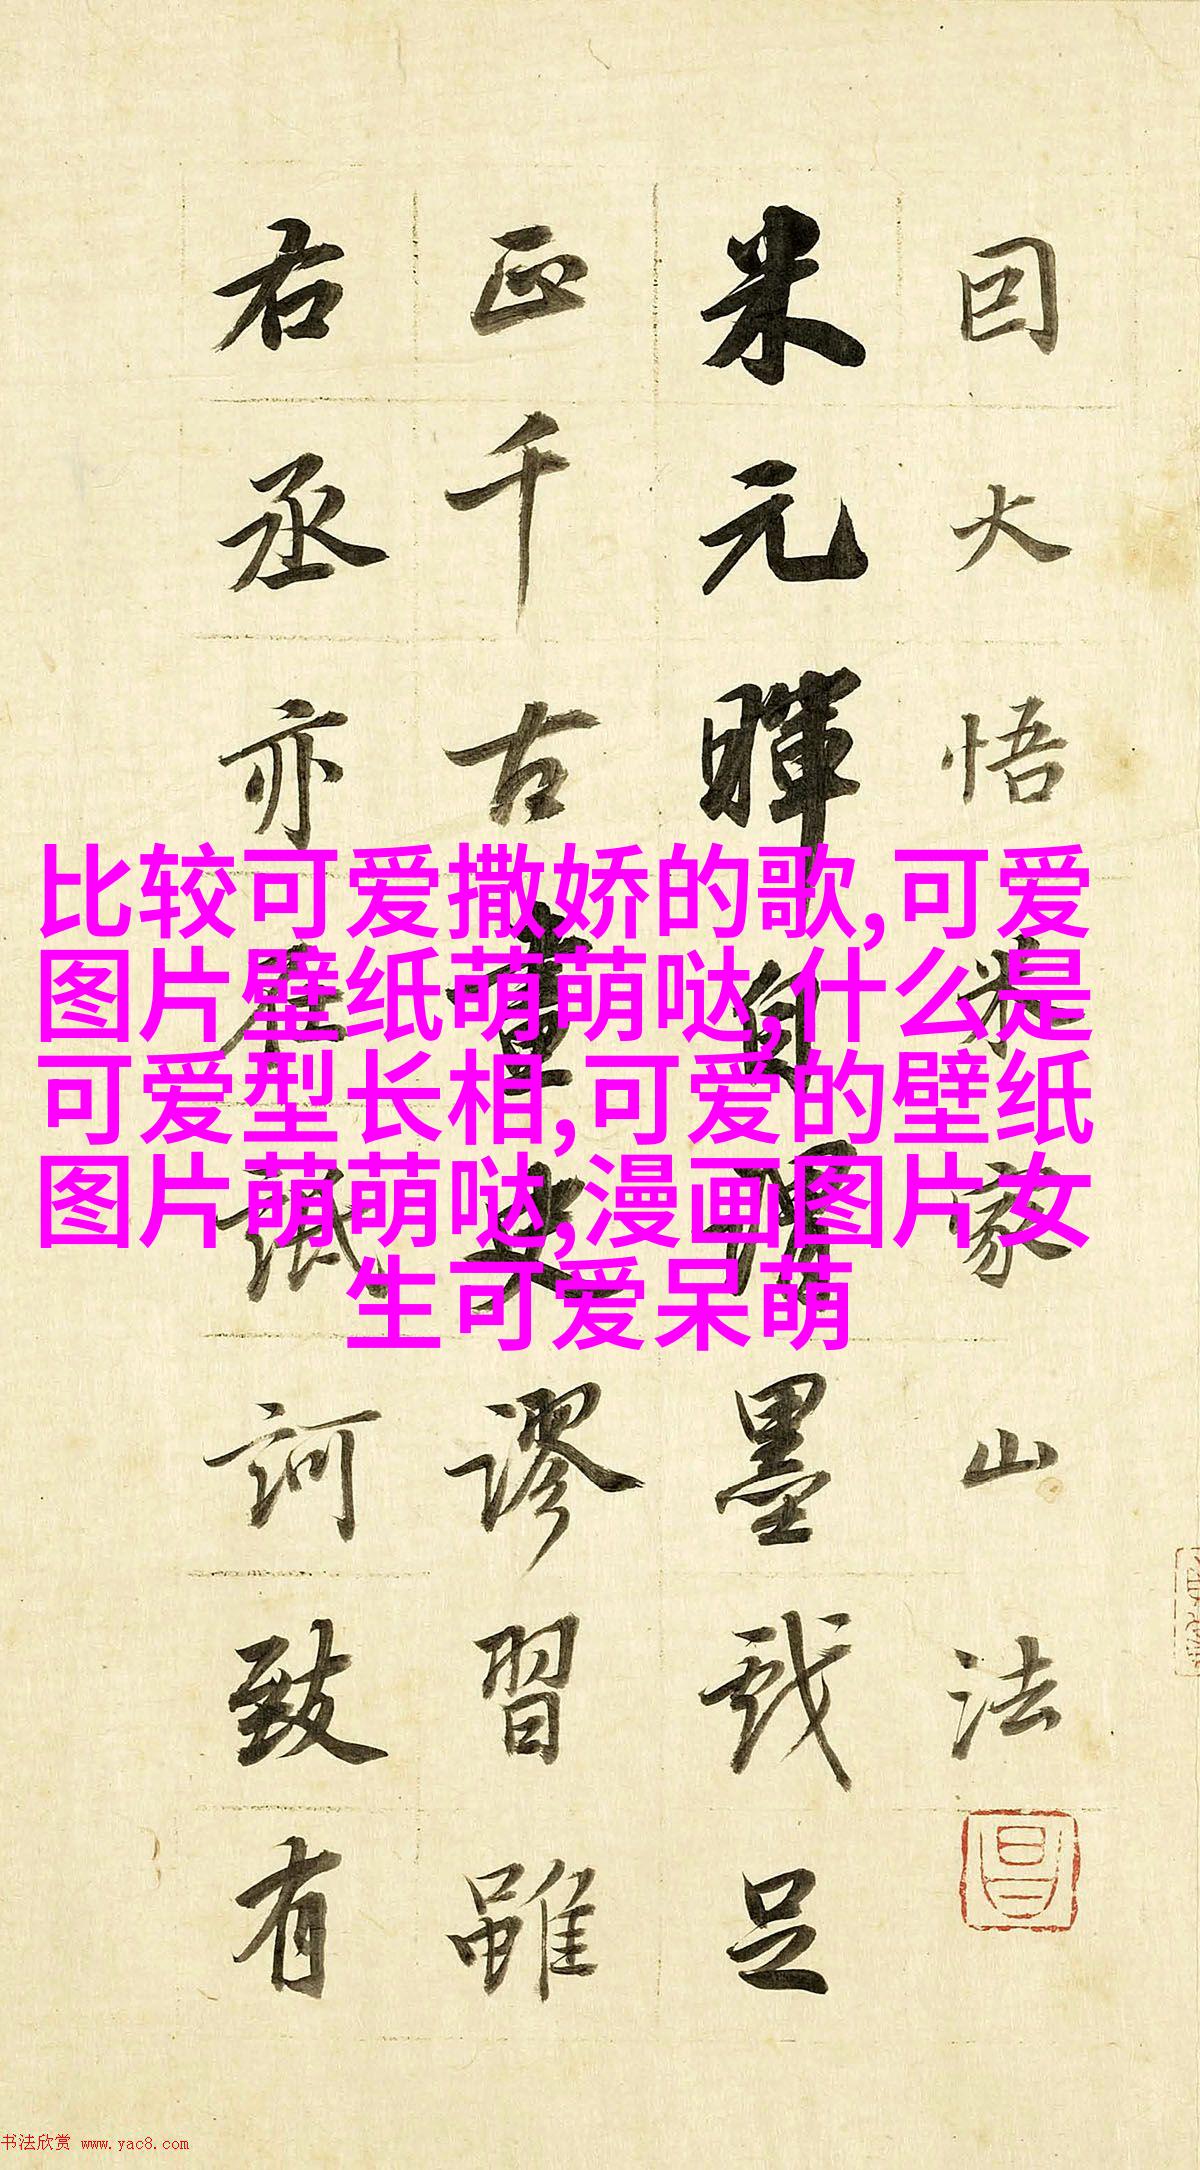 囙大悟米家山法
米元暉自謂墨戲足
正千古畫史謬習雖
右丞亦在詆訶致有
比较可爱撒娇的歌,可爱
图片壁纸萌萌哒,什么是
可爱型长相,可爱的壁纸
图片萌萌哒,漫画图片女
生可爱呆萌
昌
书法欣赏 www.yac8.com